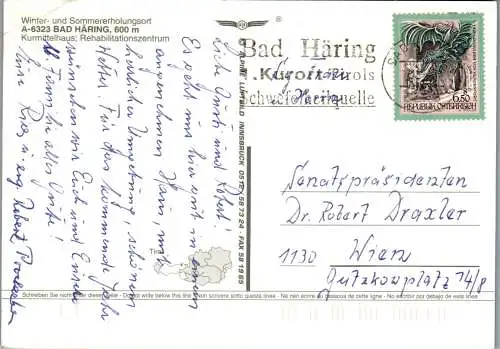 Winter- und Sommererholungsort
A-6323 BAD HÄRING, 600 m
Kurmittelhaus; Rehabilitationszentrum
Bad Häring
Kurort in Tirols
Schwefelheilquelle
6.50
REPUBLIK ÖSTERREICH
ALPINE LUFTBILD INNSBRUCK 0512 / 58 73 24 · FAX 58 19 85
Liebe Omitti und Robert!
Es geht uns hier mit einem
angenehmen Haus und
herrlicher Umgebung, schönem
Wetter. Für das kommende Jahr
wünschen wir Euch und Eurer
lb. Familie alles Gute!
Eure
Robert
Senatspräsidenten
Dr. Robert Draxler
1130 Wien
Gutzkowplatz 7/8
Tirol
Schreiben Sie nicht unter dieser Linie - Do not write below this line - Non scrivere sotto questa linea - Ne rien écrire au dessous de cette ligne - No escribir por debajo de esta linea